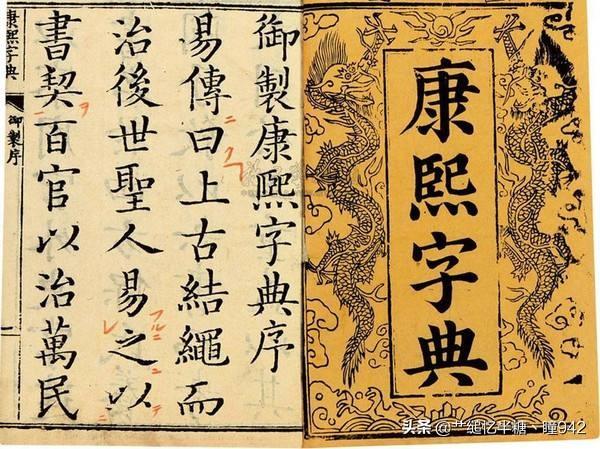 康熙字典
御製康熙字典序
易傳曰上古結繩而
治後世聖人易之以
書契百官以治萬民
康熙字典
御製序
ニ
ク
フルニ
ニ
テ
レ
ヲ
头条 @艹缒忆半糖丶瞳942